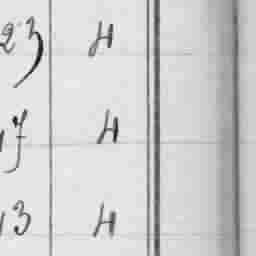 23 H
17 H
13 H